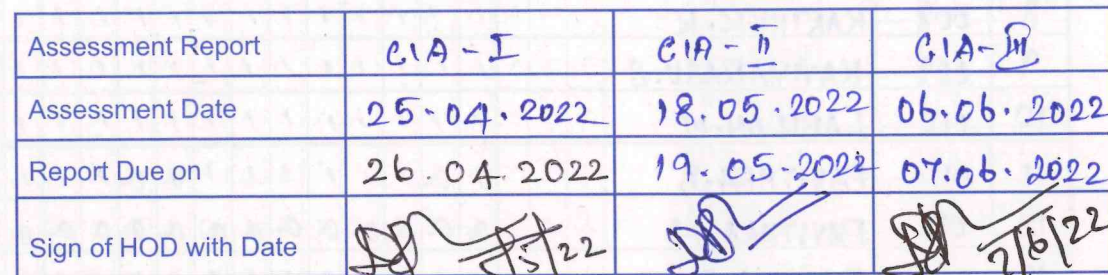 Assessment Report CIA - I CIA - II CIA - III
Assessment Date 25.04.2022 18.05.2022 06.06.2022
Report Due on 26.04.2022 19.05.2022 07.06.2022
Sign of HOD with Date 7/6/22